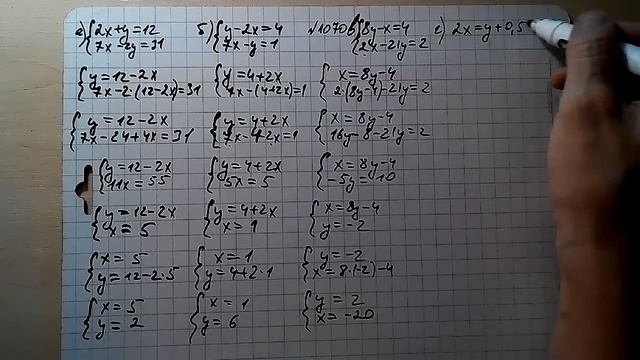 а) {2x+y=12
{7x-2y=31
{y=12-2x
{7x-2·(12-2x)=31
{y=12-2x
{7x-24+4x=31
{y=12-2x
{11x=55
{y=12-2x
{x=5
{x=5
{y=12-2·5
{x=5
{y=2
б) {y-2x=4
{7x-y=1
{y=4+2x
{7x-(4+2x)=1
{y=4+2x
{7x-4-2x=1
{y=4+2x
{5x=5
{y=4+2x
{x=1
{x=1
{y=4+2·1
{x=1
{y=6
№1070
в) {8y-x=4
{2x-21y=2
{x=8y-4
{2·(8y-4)-21y=2
{x=8y-4
{16y-8-21y=2
{x=8y-4
{-5y=10
{x=8y-4
{y=-2
{y=-2
{x=8·(-2)-4
{y=2
{x=-20
г) 2x=y+0,5